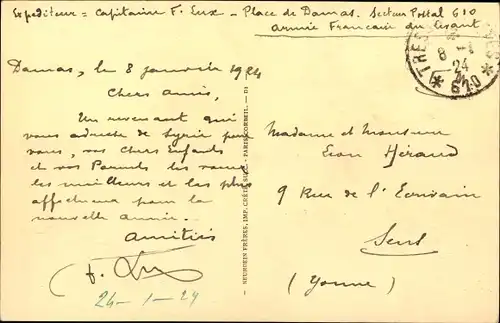 Expéditeur = Capitaine F. Lux - Place de Damas. Secteur Postal 610
Armée Française du Levant
TRES
8 - 1
24
* 610 *
Damas, le 8 janvier 1924
Chers amis,
Un revenant qui
vous adresse de Syrie pour
vous, vos Chers Enfants
et vos Parents les vœux
les meilleurs et les plus
affectueux pour la
nouvelle année.
Amitiés
F. Lux
24-1-24
NEURDEIN FRÈRES, IMP. CRÉTÉ, SUCC. - PARIS-CORBEIL.
Madame et Monsieur
Léon Héraud
9 Rue de l'Ecrivain
Sens
(Yonne)